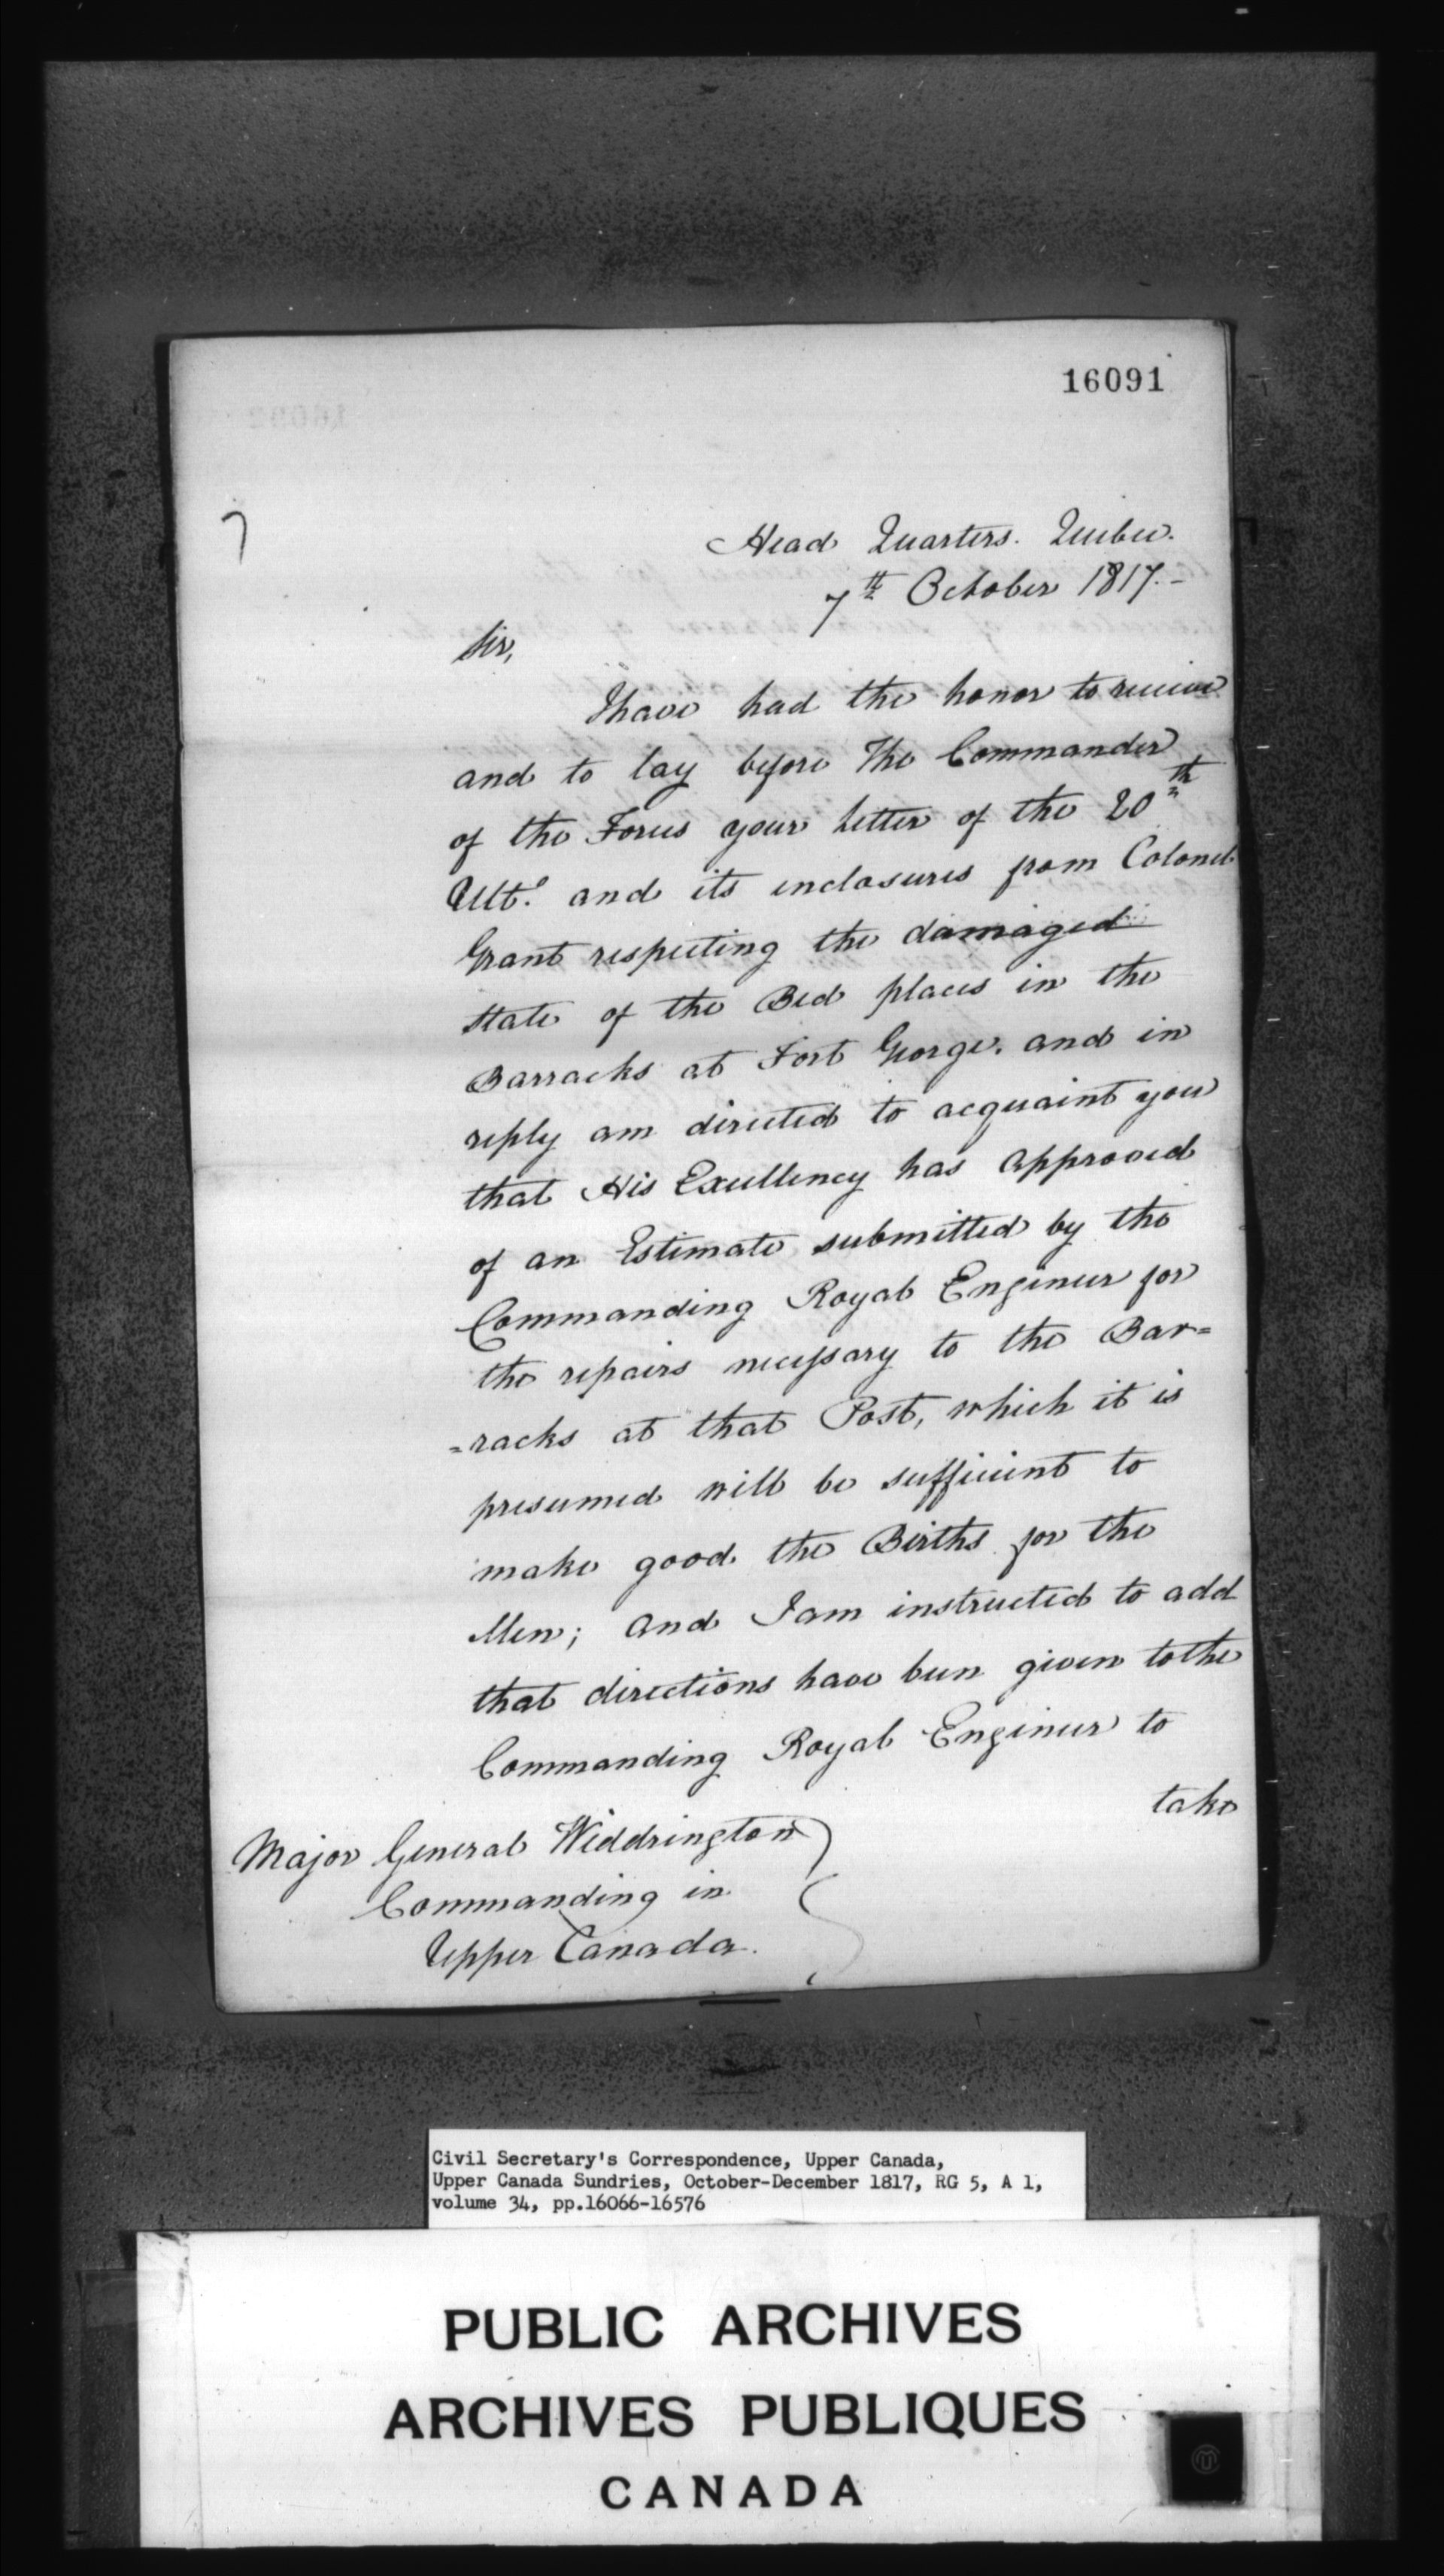 16091
7
Head Quarters. Quebec.
7th October 1817.-
Sir,
I have had the honor to receive
and to lay before The Commander
of the Forces your Letter of the 20th
Ulto. and its inclosures from Colonel
Grant respecting the damaged
state of the Bed places in the
Barracks at Fort George. and in
reply am directed to acquaint you
that His Excellency has approved
of an Estimate submitted by the
Commanding Royal Engineer for
the repairs necessary to the Bar=
=racks at that Post, which it is
presumed will be sufficient to
make good the Births for the
Men; and I am instructed to add
that directions have been given to the
Commanding Royal Engineer to
take
Major General Widdrington
Commanding in
Upper Canada.
Civil Secretary's Correspondence, Upper Canada,
Upper Canada Sundries, October-December 1817, RG 5, A 1,
volume 34, pp.16066-16576
PUBLIC ARCHIVES
ARCHIVES PUBLIQUES
CANADA